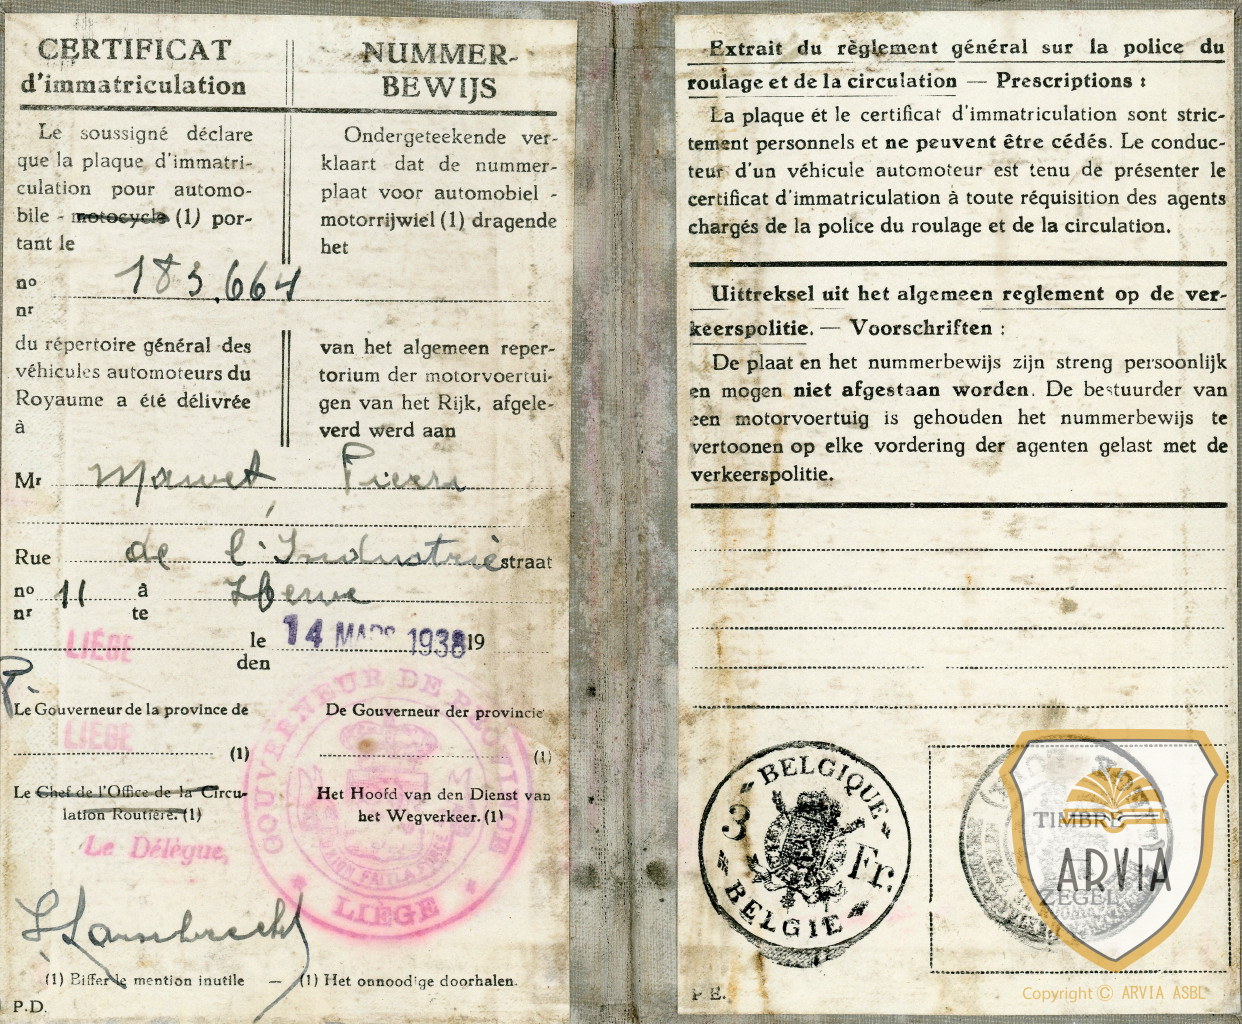 CERTIFICAT
d'immatriculation
Le soussigné déclare
que la plaque d'immatri-
culation pour automo-
bile - motocycle (1) por-
tant le
NUMMER-
BEWIJS
Ondergeteekende ver-
klaart dat de nummer-
plaat voor automobiel -
motorrijwiel (1) dragende
het
no 183.664
nr
du répertoire général des
véhicules automoteurs du
Royaume a été délivrée
à
van het algemeen reper-
torium der motorvoertui-
gen van het Rijk, afgele-
verd werd aan
Mr Mawet Pierre
Rue de l'Industrie straat
no 11 à Herve
nr te
LIÉGE le 14 MARS 1938 19
den
P.
Le Gouverneur de la province de
LIÉGE (1)
De Gouverneur der provincie
(1)
Le Chef de l'Office de la Circu-
lation Routière. (1)
Het Hoofd van den Dienst van
het Wegverkeer. (1)
Le Délégué,
GOUVERNEUR DE PROVINCE
LIÈGE
(1) Biffer le mention inutile — (1) Het onnoodige doorhalen.
P.D.
Extrait du règlement général sur la police du
roulage et de la circulation — Prescriptions :
La plaque et le certificat d'immatriculation sont stric-
tement personnels et ne peuvent être cédés. Le conduc-
teur d'un véhicule automoteur est tenu de présenter le
certificat d'immatriculation à toute réquisition des agents
chargés de la police du roulage et de la circulation.
Uittreksel uit het algemeen reglement op de ver-
keerspolitie. — Voorschriften :
De plaat en het nummerbewijs zijn streng persoonlijk
en mogen niet afgestaan worden. De bestuurder van
een motorvoertuig is gehouden het nummerbewijs te
vertoonen op elke vordering der agenten gelast met de
verkeerspolitie.
BELGIQUE
3 Fr.
BELGIE
TIMBRE
ZEGEL
ARVIA
P.E.
Copyright © ARVIA ASBL